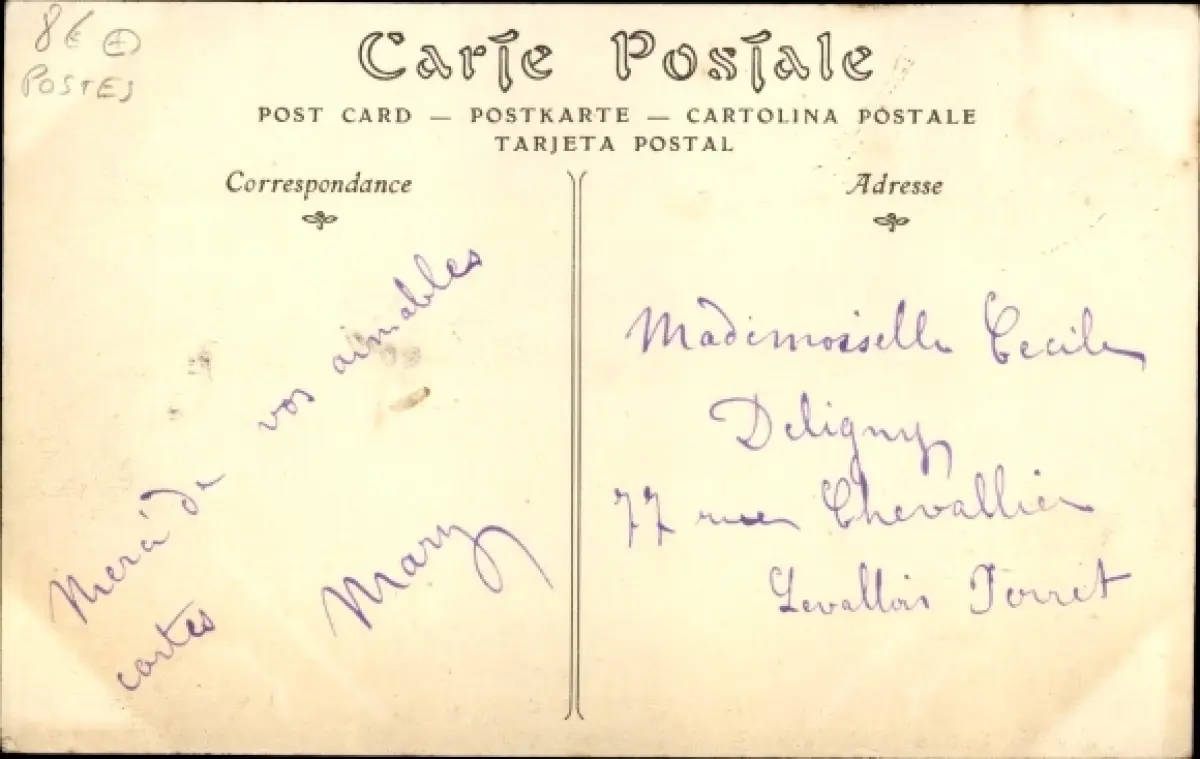 8€ +
POSTES
Carte Postale
POST CARD — POSTKARTE — CARTOLINA POSTALE
TARJETA POSTAL
Correspondance
Merci de vos aimables
cartes
Mary
Adresse
Mademoiselle Cecile
Deligny
77 rue Chevallier
Levallois Perret